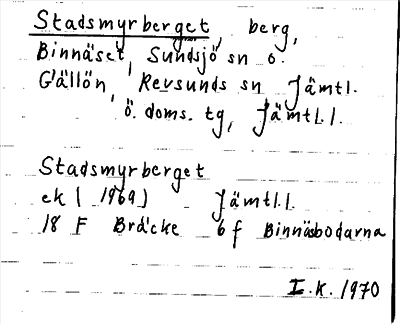 Stadsmyrberget, berg,
Binnäset, Sundsjö sn o.
Gällön, Revsunds sn Jämtl.
ö. doms. tg, Jämtl.l.
Stadsmyrberget
ek (1969) Jämtl.l.
18 F Bräcke 6 f Binnäsbodarna
I.K. 1970